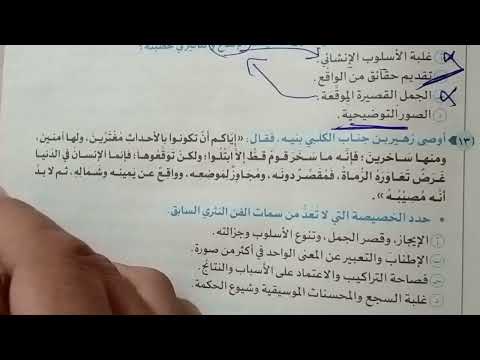 غلبة الأسلوب الإنشائي.
تقديم حقائق من الواقع.
الجمل القصيرة الموقعة.
الصور التوضيحية.
١٣ أوصى زهير بن جناب الكلبي بنيه، فقال: «إياكم أن تكونوا بالأحداث مغترين، ولها آمنين،
ومنها ساخرين؛ فإنه ما سخر قوم قط إلا ابتلوا؛ ولكن توقعوها؛ فإنما الإنسان في الدنيا
غرض تعاوره الرماة، فمقصر دونه، ومجاوز لموضعه، وواقع عن يمينه وشماله، ثم لا بد
أنه مصيبه».
• حدد الخصيصة التي لا تعد من سمات الفن النثري السابق.
أ الإيجاز، وقصر الجمل، وتنوع الأسلوب وجزالته.
ب الإطناب والتعبير عن المعنى الواحد في أكثر من صورة.
ج فصاحة التراكيب والاعتماد على الأسباب والنتائج.
د غلبة السجع والمحسنات الموسيقية وشيوع الحكمة.